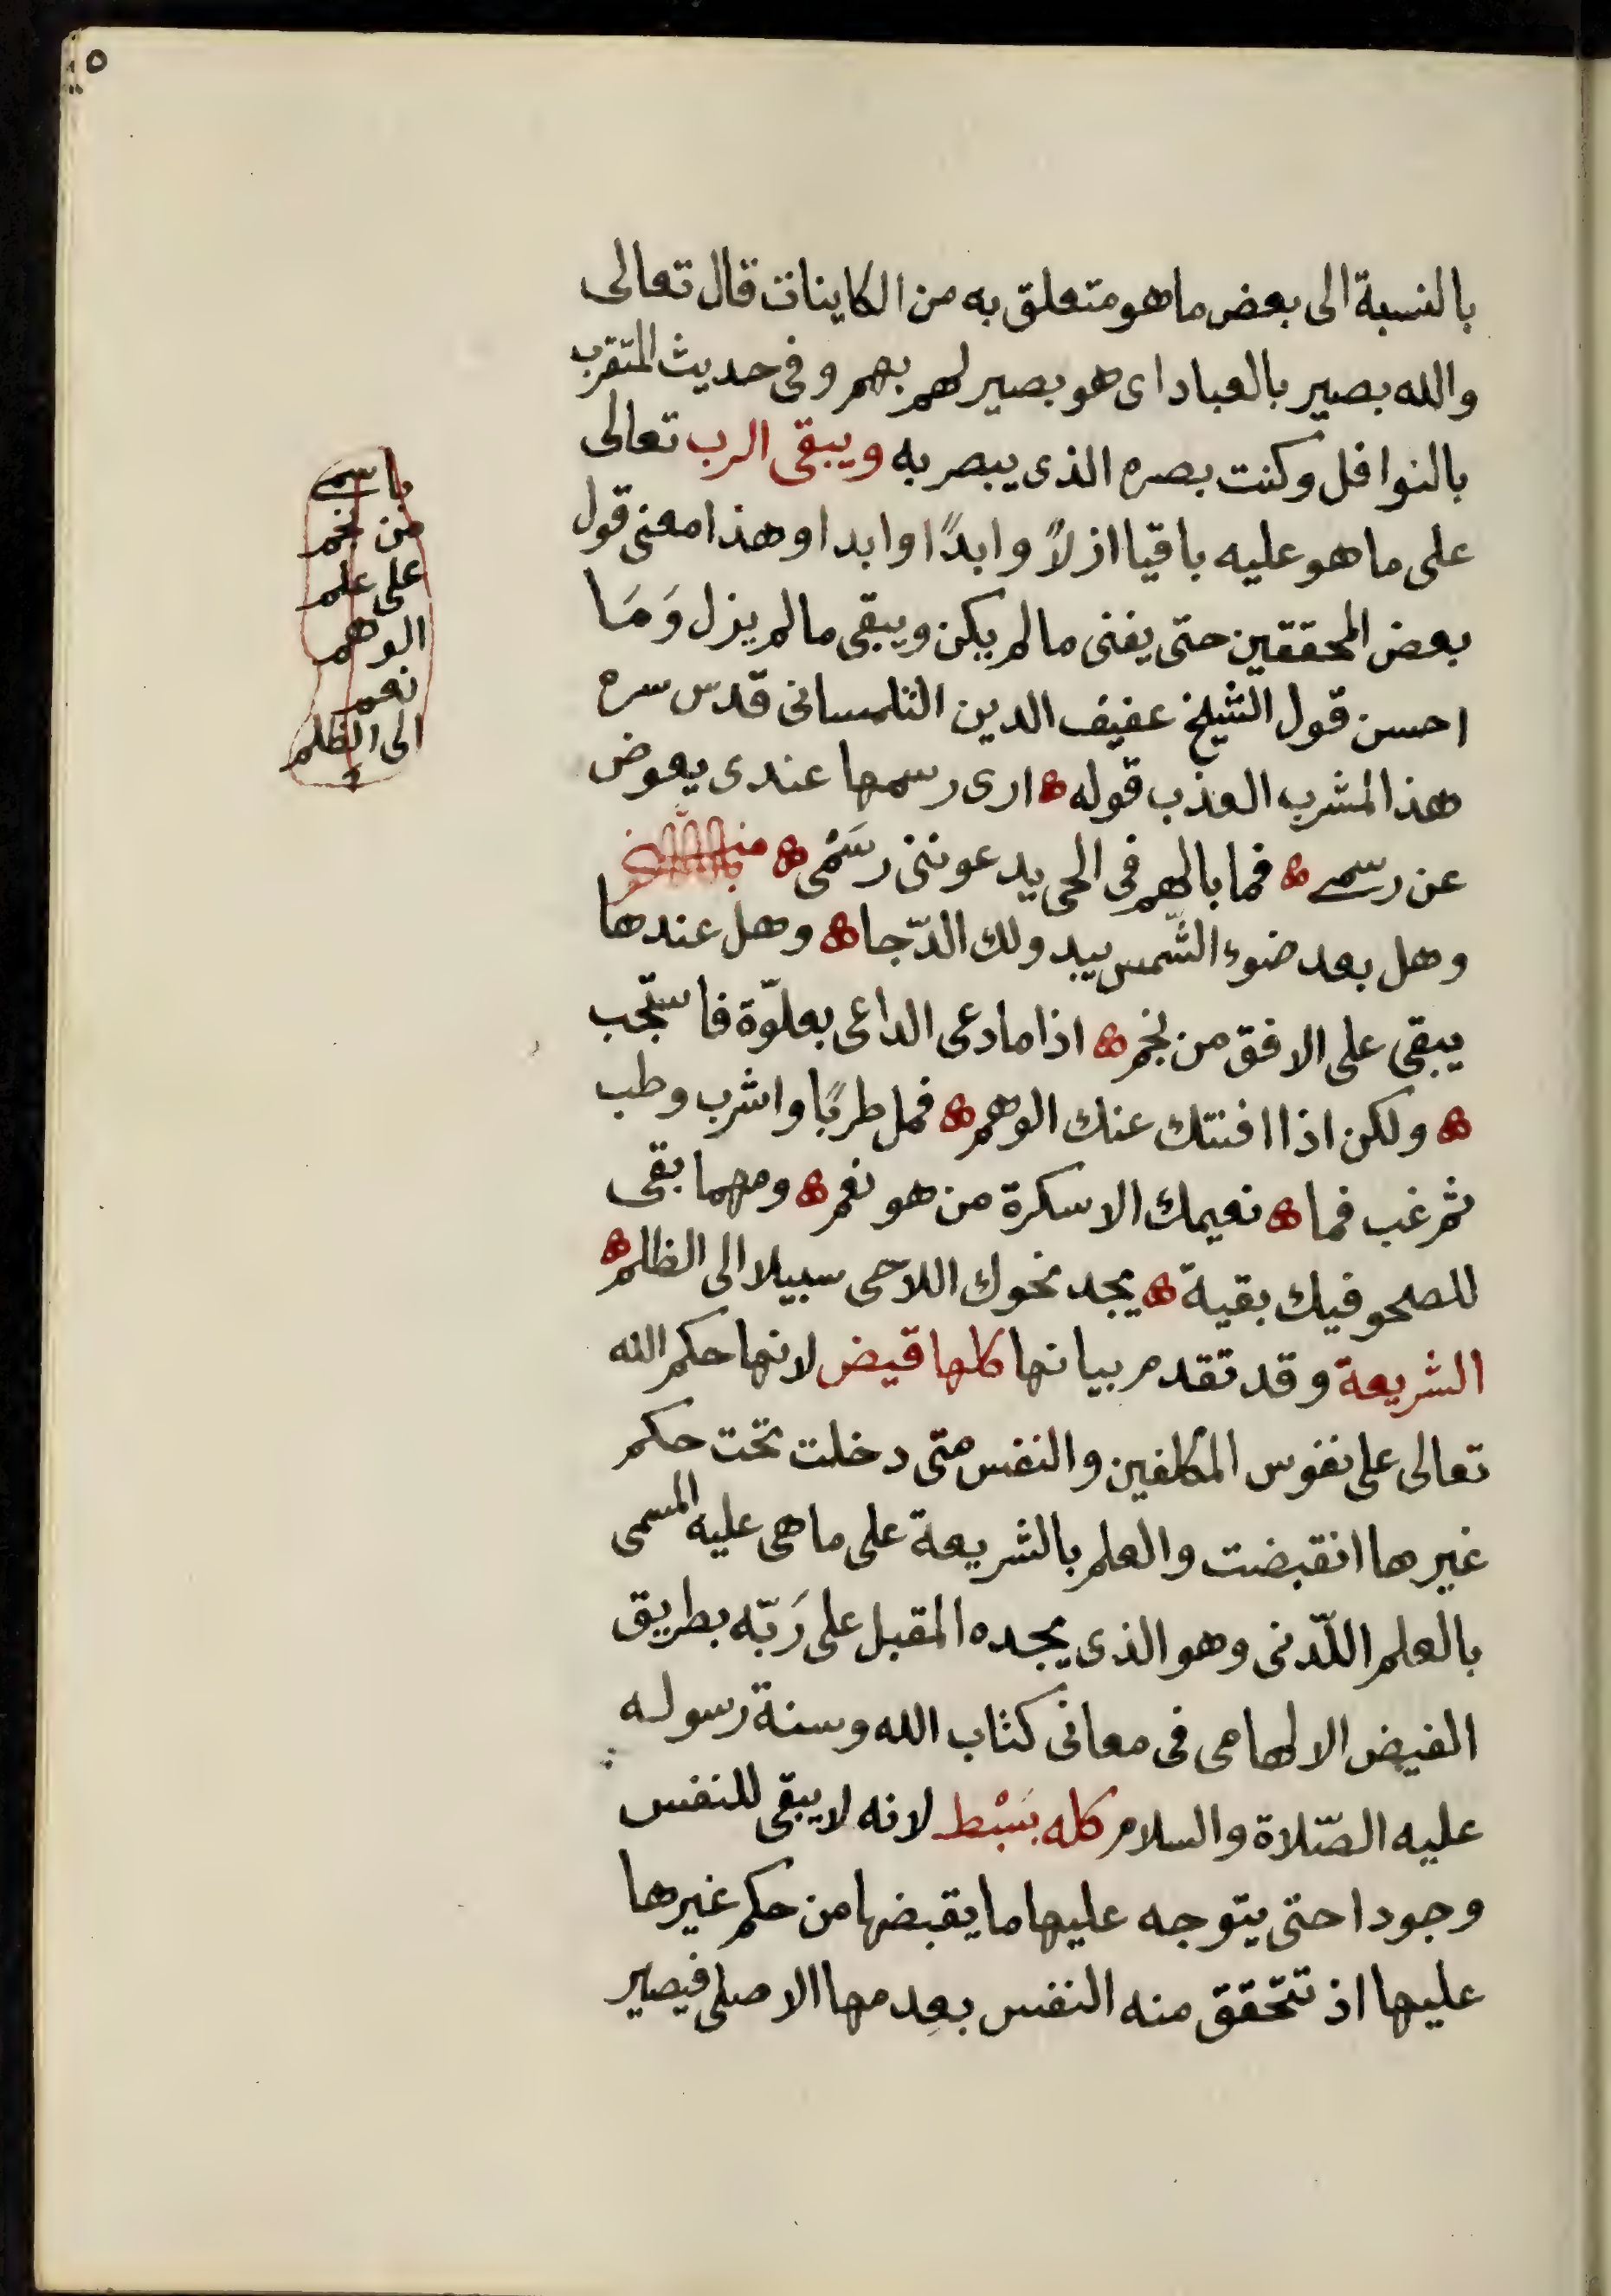 بالنسبة الى بعض ما هو متعلق به من الكاينات قال تعالى
والله بصير بالعباد اى هو بصير لهم بهم وفى حديث المتقرب
بالنوافل وكنت بصره الذى يبصر به ويبقى الرب تعالى
على ما هو عليه باقيا ازلاً وابدًا وابدا وهذا معنى قول
بعض المحققين حتى يفنى ما لم يكن ويبقى ما لم يزل وَمَا
احسن قول الشيخ عفيف الدين التلمسانى قدس سره
هذا المشرب العذب قوله ارى رسمها عندى يعوض
عن رسمى فما بالهم فى الحى يدعوننى رَسْمى
وهل بعد ضوء الشّمس يبدو لك الدّجا وهل عندها
يبقى على الافق من نجم اذا ما دعى الداعى بعلوّة فاستجب
ولكن اذا افنتك عنك الوهم فمل طربًا واشرب وطب
ثم غب فما نعيمك الا سكرة من هو نعم ومهما بقى
للصحو فيك بقية يجد نحوك اللاحى سبيلا الى الظلم
الشريعة وقد تقدم بيانها كلها قبض لانها حكم الله
تعالى على نفوس المكلفين والنفس متى دخلت تحت حكم
غيرها انقبضت والعلم بالشريعة على ما هى عليه المسمى
بالعلم اللّدنى وهو الذى يجده المقبل على رَبّه بطريق
الفيض الالهامى فى معانى كتاب الله وسنة رسوله
عليه الصّلاة والسلام كله بَسْط لانه لا يبقى للنفس
وجودا حتى يتوجه عليها ما يقبضها من حكم غيرها
عليها اذ تتحقق منه النفس بعدمها الاصلى فيصير
باسمى
من نجم
على علم
الوهم
نعم
الى الظلم